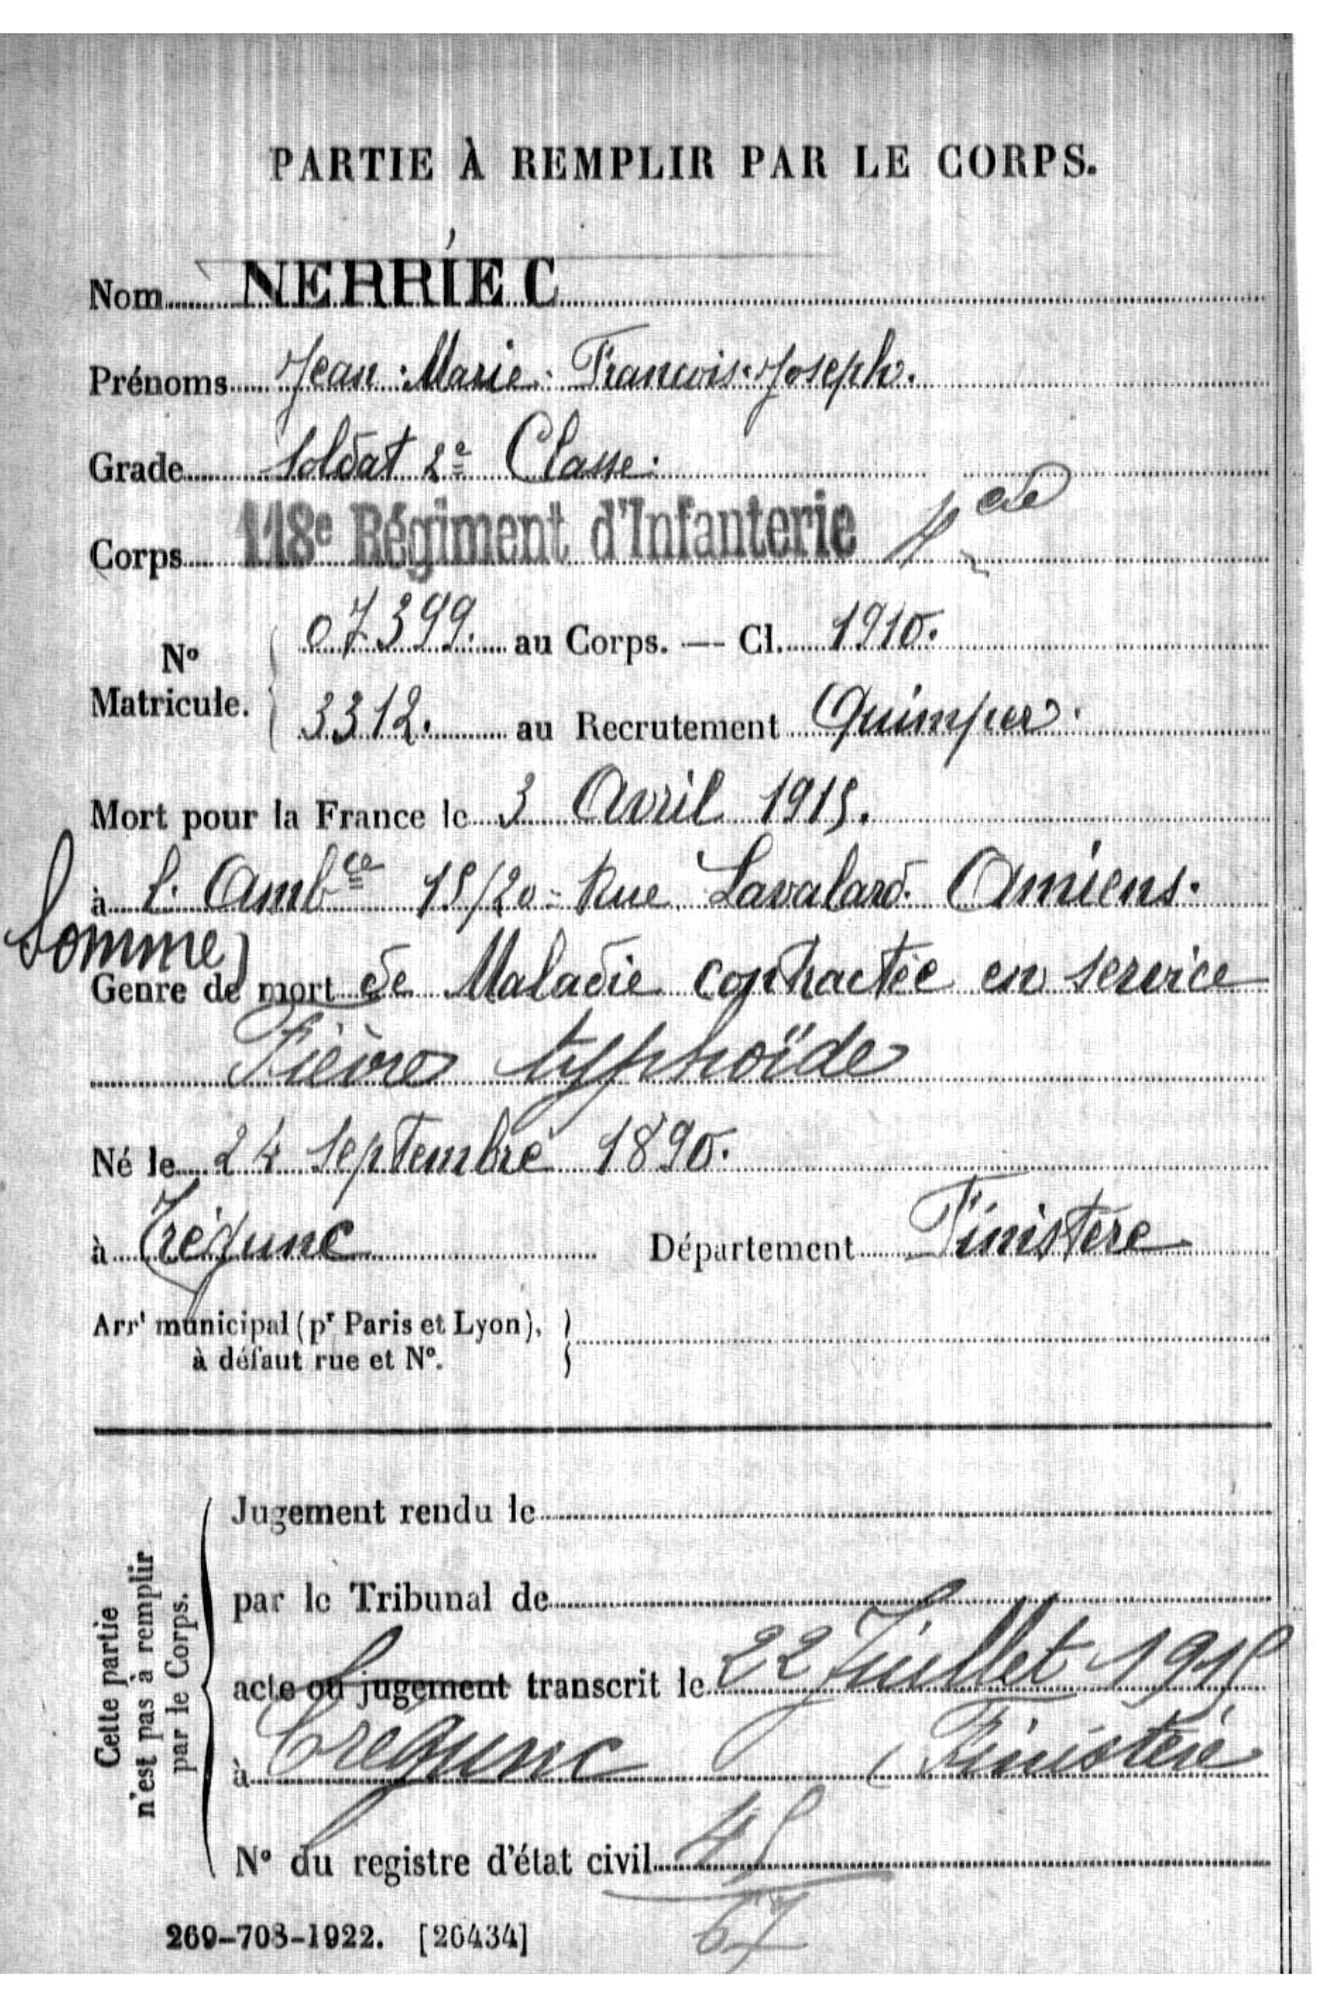 PARTIE À REMPLIR PAR LE CORPS.
Nom NERRIÉC
Prénoms Jean Marie François Joseph.
Grade Soldat 2e Classe.
Corps 118e Régiment d'Infanterie
No Matricule. 07399. au Corps. — Cl. 1910.
3312. au Recrutement Quimper.
Mort pour la France le 3 Avril 1915.
à l'Ambce 15/20 Rue Lavalard. Amiens.
Somme)
Genre de mort de Maladie contractée en service
Fièvre typhoïde
Né le 24 Septembre 1890.
à Trégunc Département Finistère
Arrt municipal (pr Paris et Lyon),
à défaut rue et No.
Cette partie
n'est pas à remplir
par le Corps.
Jugement rendu le
par le Tribunal de
acte ou jugement transcrit le 22 Juillet 1915
à Trégunc (Finistère
No du registre d'état civil 45
67
269-708-1922. [26434]